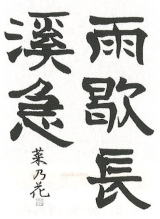 雨歇長
溪急
菜乃花